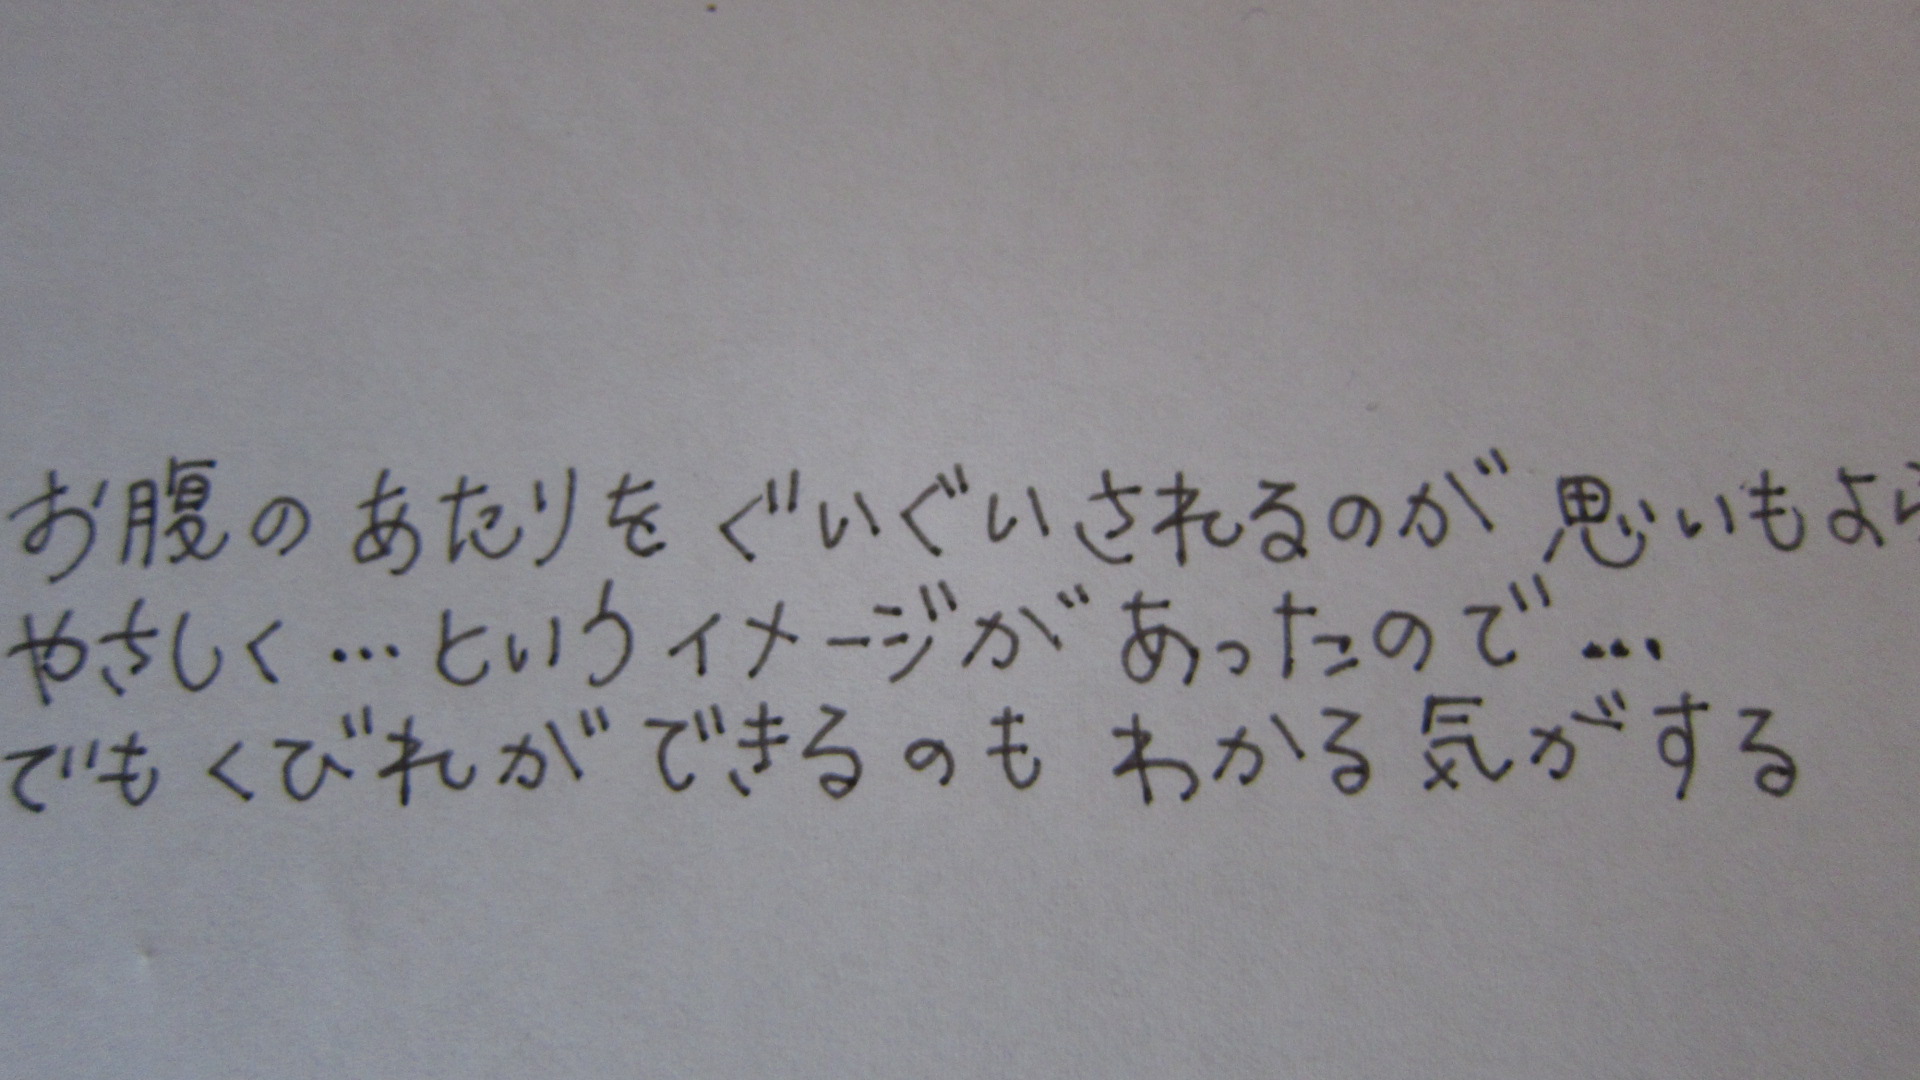 お腹のあたりをぐいぐいされるのが思いもよら
やさしく…というイメージがあったので…
でもくびれができるのもわかる気がする